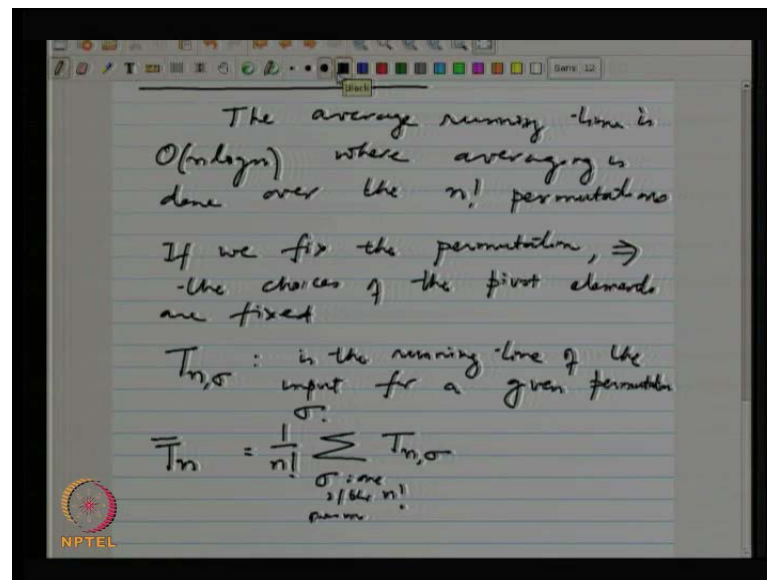 Sans 12
Black
The average running time is
O(n log n) where averaging is
done over the n! permutations
If we fix the permutation, ⇒
the choices of the pivot elements
are fixed
T_{n,σ} : is the running time of the
input for a given permutation
σ.
T̅_n = 1/n! ∑ T_{n,σ}
σ: one
of the n!
NPTEL